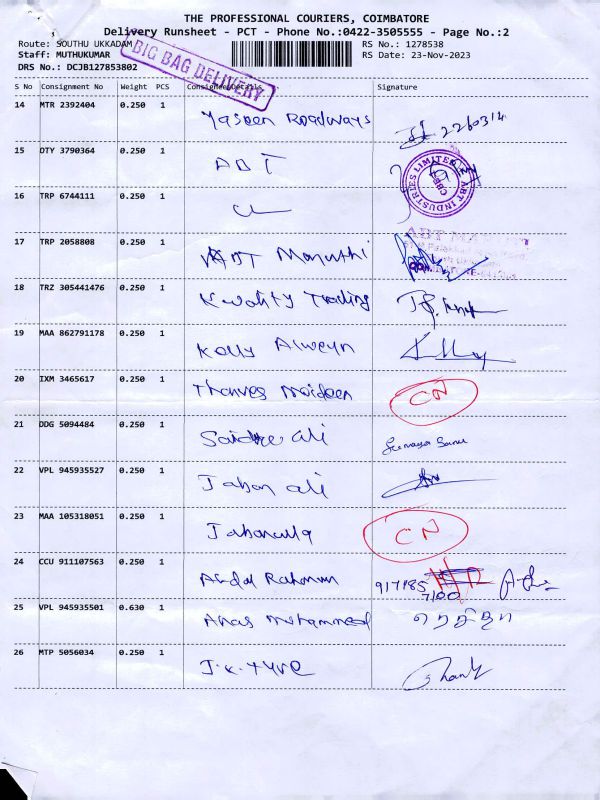 THE PROFESSIONAL COURIERS, COIMBATORE
Delivery Runsheet - PCT - Phone No.:0422-3505555 - Page No.:2
Route: SOUTHU UKKADAM
RS No.: 1278538
Staff: MUTHUKUMAR
RS Date: 23-Nov-2023
DRS No.: DCJB127853802
BIG BAG DELIVERY
S No Consignment No Weight PCS Consignee Details Signature
14 MTR 2392404 0.250 1 Yaseen Roadways
2260314
15 DTY 3790364 0.250 1 ABT
ABT INDUSTRIES LIMITED
16 TRP 6744111 0.250 1
17 TRP 2058808 0.250 1 ABT Maruthi
18 TRZ 305441476 0.250 1 Kwality Trading
19 MAA 862791178 0.250 1 Kolly Alweyn
20 IXM 3465617 0.250 1 Thanves Maideen CN
21 DDG 5094484 0.250 1 ali
22 VPL 945935527 0.250 1 Jaban ali
23 MAA 105318051 0.250 1 CN
24 CCU 911107563 0.250 1 Abdul Rahman 917185
7100
25 VPL 945935501 0.630 1 Anas Mohammed
26 MTP 5056034 0.250 1 J.K. Tyre